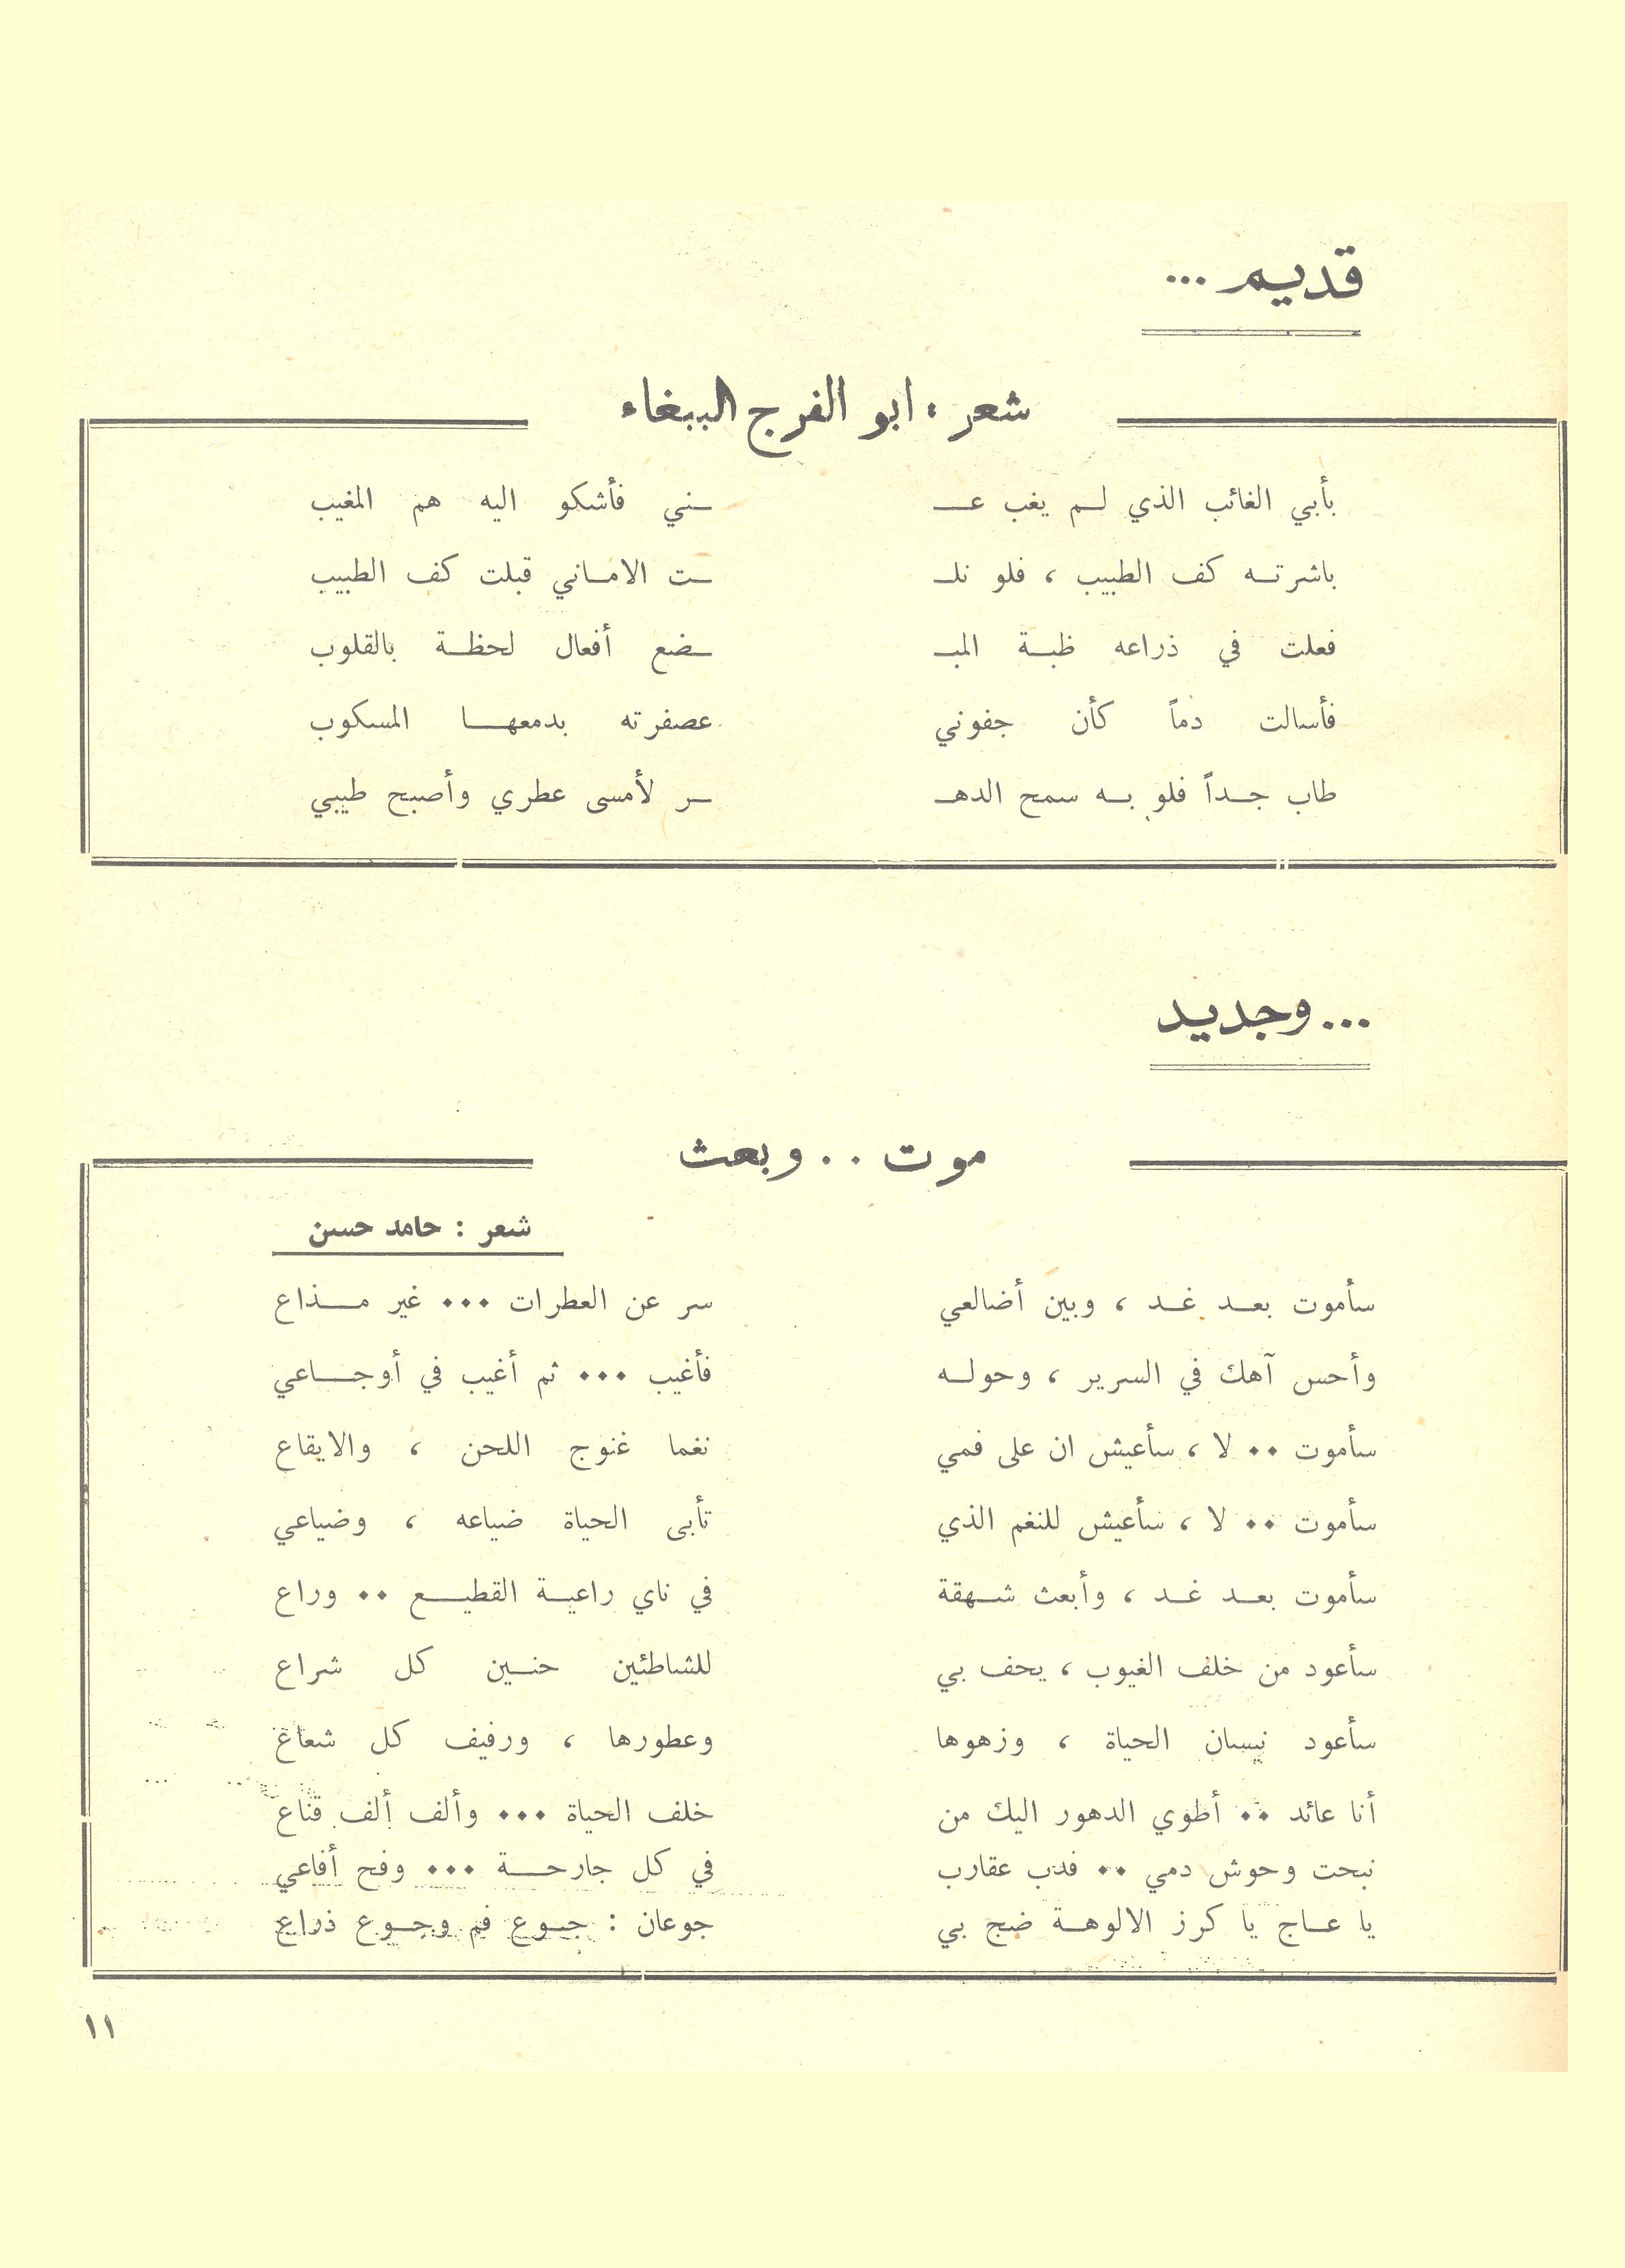 قديم ...
شعر : ابو الفرج الببغاء
بأبي الغائب الذي لم يغب عـ ـني فأشكو اليه هم المغيب
باشرته كف الطبيب ، فلو نلـ ـت الاماني قبلت كف الطبيب
فعلت في ذراعه ظبة المبـ ـضع أفعال لحظة بالقلوب
فأسالت دماً كأن جفوني عصفرته بدمعها المسكوب
طاب جداً فلو به سمح الدهـ ـر لأمسى عطري وأصبح طيبي
... وجديد
موت .. وبعث
شعر : حامد حسن
سأموت بعد غد ، وبين أضالعي سر عن العطرات ... غير مذاع
وأحس آهك في السرير ، وحوله فأغيب ... ثم أغيب في أوجاعي
سأموت .. لا ، سأعيش ان على فمي نغما غنوج اللحن ، والايقاع
سأموت .. لا ، سأعيش للنغم الذي تأبى الحياة ضياعه ، وضياعي
سأموت بعد غد ، وأبعث شهقة في ناي راعية القطيع .. وراع
سأعود من خلف الغيوب ، يحف بي للشاطئين حنين كل شراع
سأعود نيسان الحياة ، وزهوها وعطورها ، ورفيف كل شعاع
أنا عائد .. أطوي الدهور اليك من خلف الحياة ... وألف ألف قناع
نبحت وحوش دمي .. فدب عقارب في كل جارحة ... وفح أفاعي
يا عاج يا كرز الالوهة ضج بي جوعان : جوع فم وجوع ذراع
١١